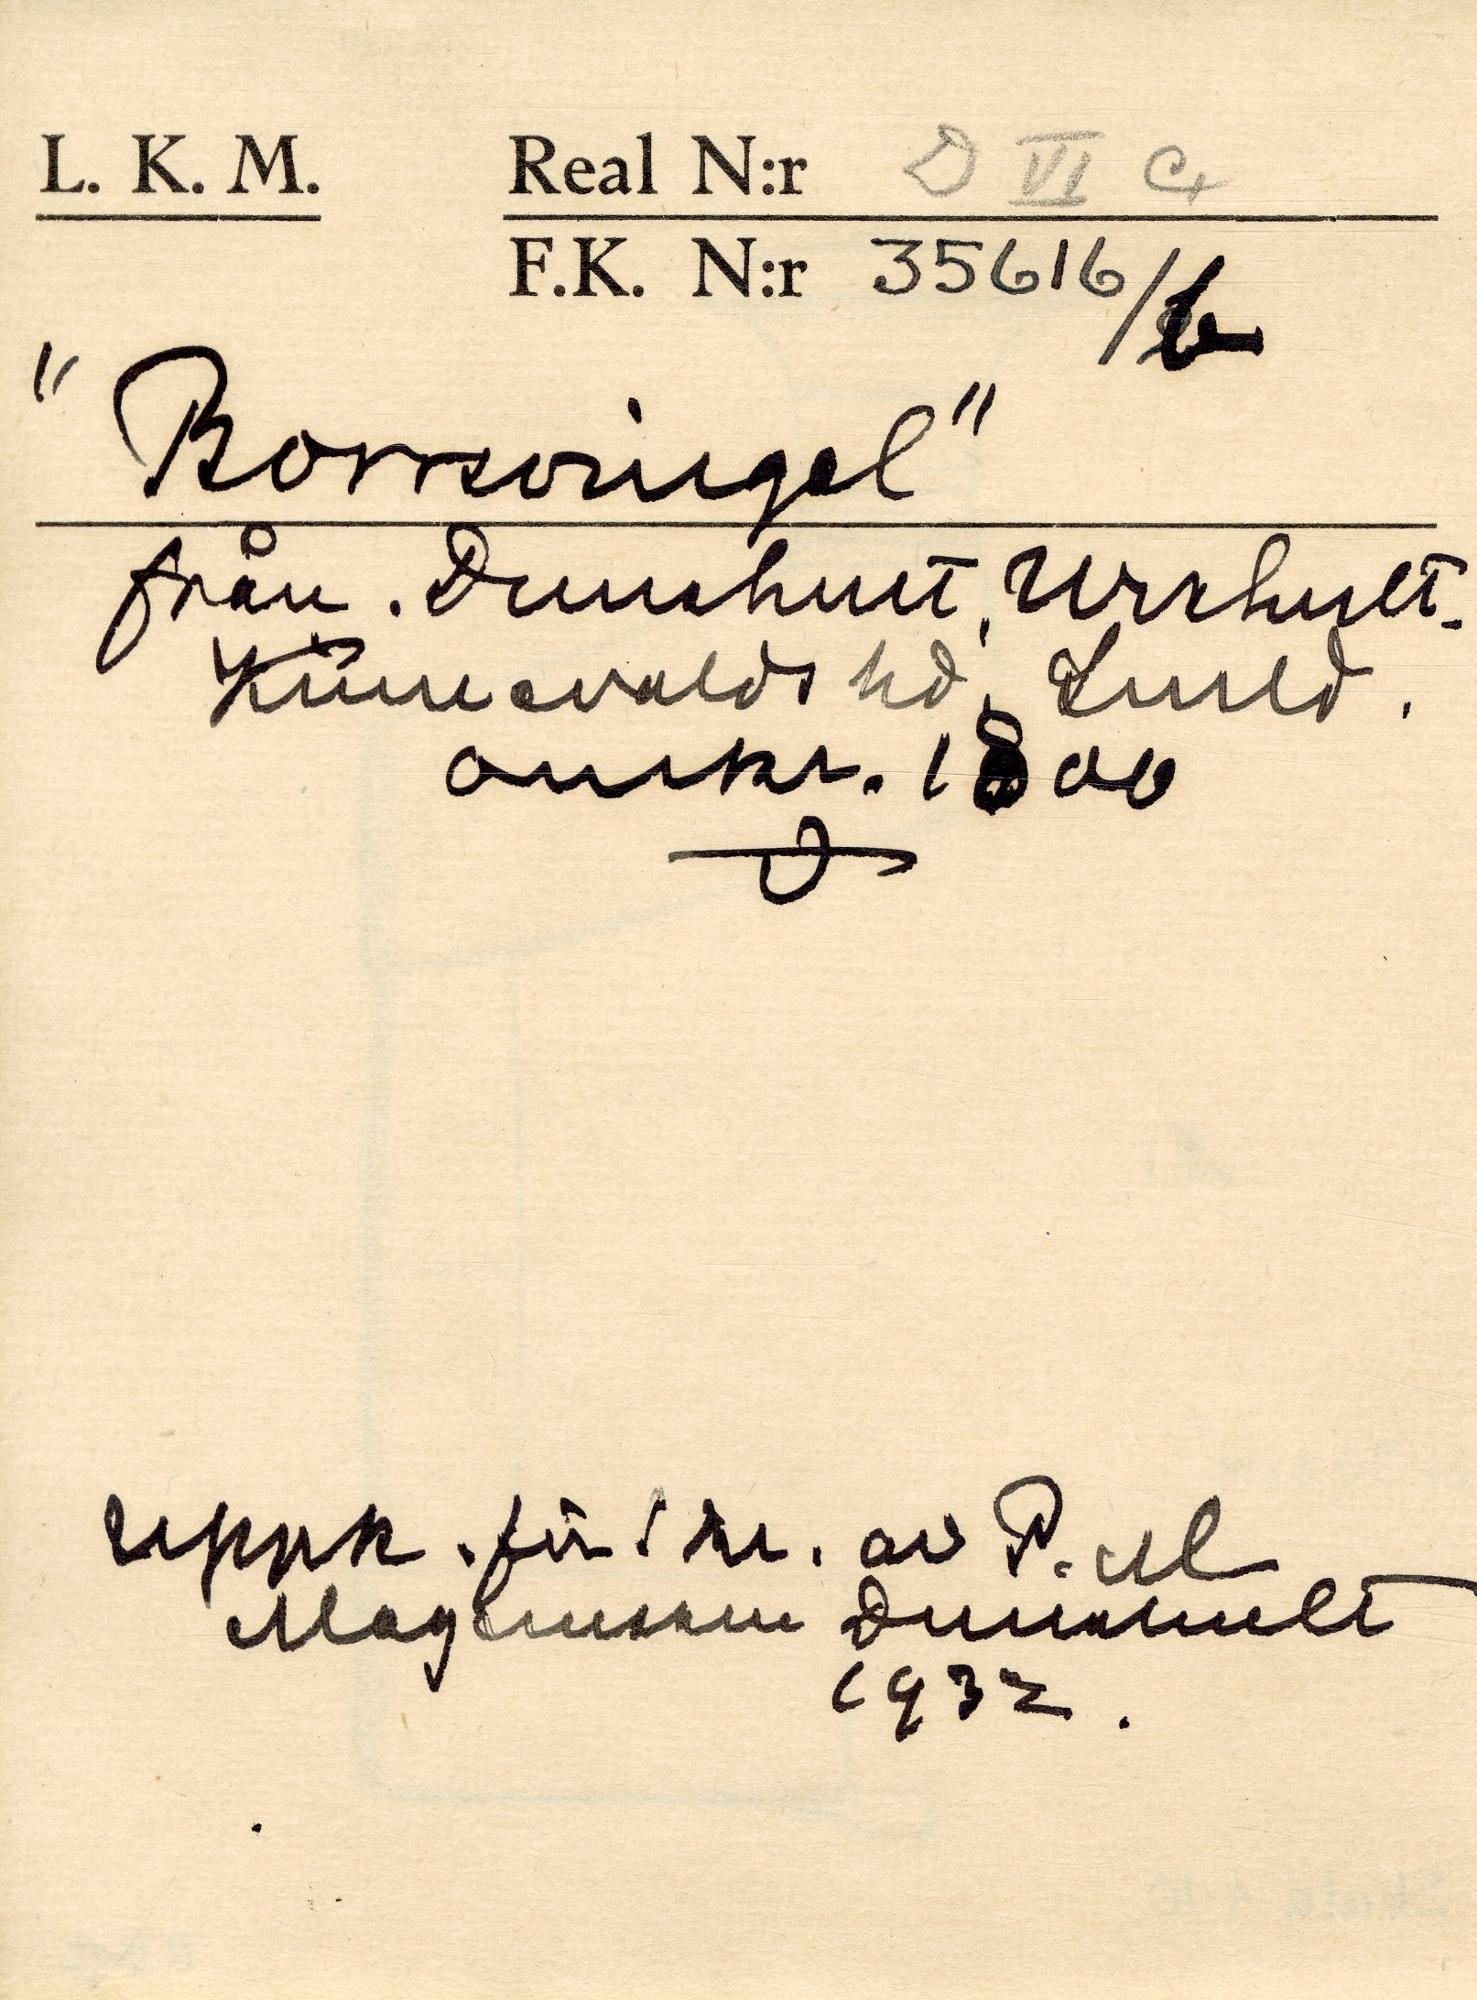 L. K. M. Real N:r D VI C
F.K. N:r 35616/b
"Borrsvingel"
från. Dunshult, Urshult.
Kinnevalds hd, Smld.
omkr. 1800
uppk. för i kr. av P. M
Magnusson Dunshult
1932.